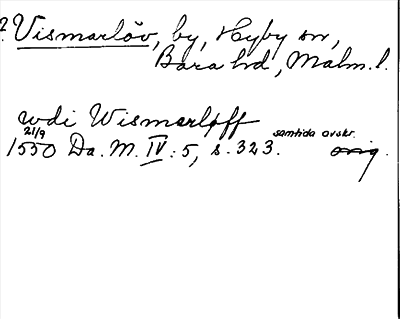 2. Vismarlöv, by, Hyby sn,
Bara hd, Malm. l.
udi Wismarløff
21/9 samtida avskr.
1550 Da. M. IV: 5, s. 323. orig.